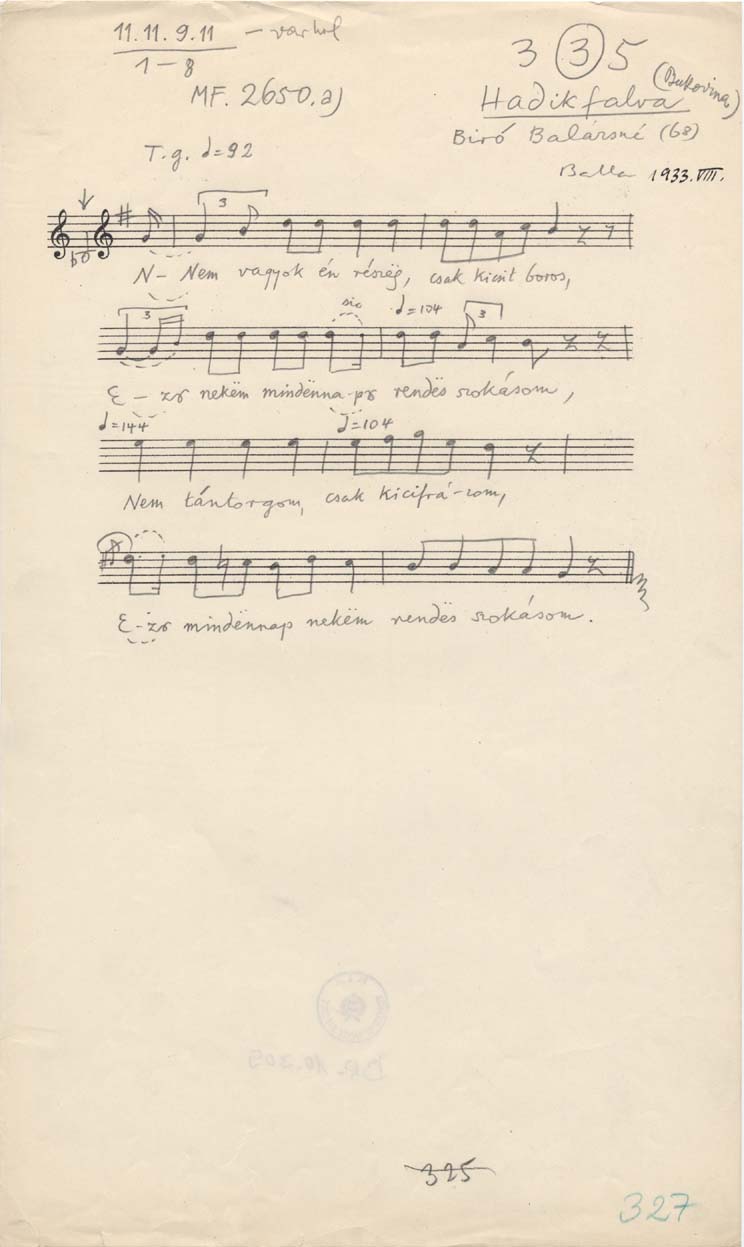 11.11.9.11
1-8
MF. 2650.a)
3 3 5
Hadikfalva (Bukovina)
Biró Balázsné (68)
Balla 1933.VIII.
T.g. ♩=92
3
N- Nem vagyok én részëg, csak kicsit boros,
3 sic ♩=104 3
E - zr nekëm mindënna-pr rendës szokásom,
♩=144 ♩=104
Nem tántorgom, csak kicifrá-zom,
E-zr mindënnap nekëm rendës szokásom.
325
327